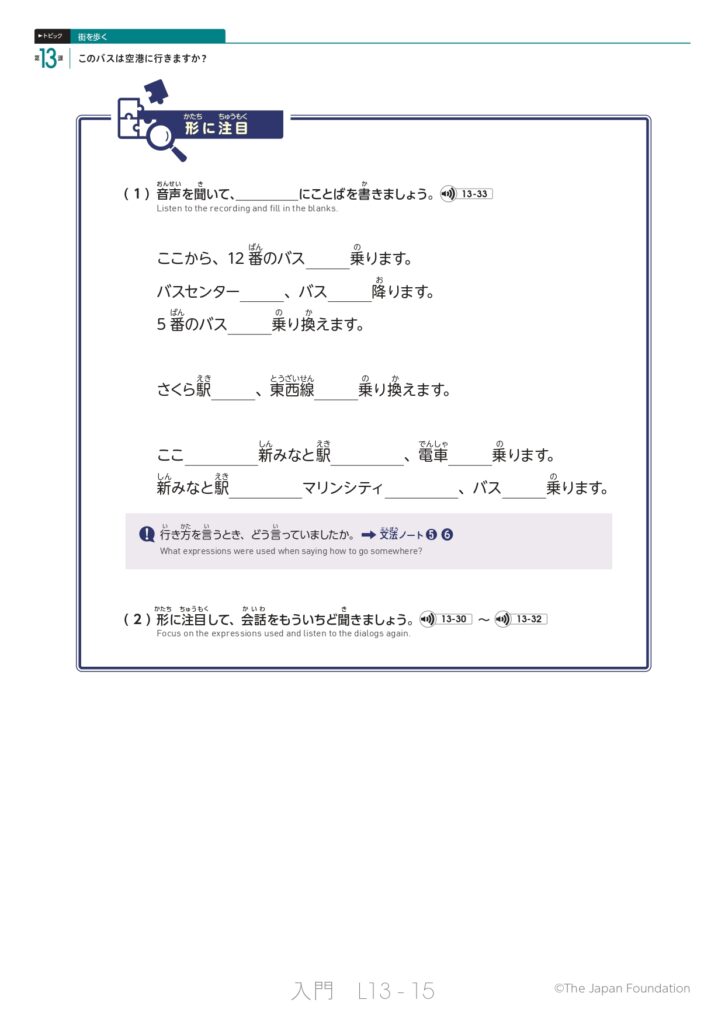 ►トピック 街を歩く
第13課 このバスは空港に行きますか？
かたち ちゅうもく
形に注目
おんせい き か
（１）音声を聞いて、_________にことばを書きましょう。 13-33
Listen to the recording and fill in the blanks.
ばん の
ここから、12番のバス______乗ります。
お
バスセンター______、バス______降ります。
ばん の か
5番のバス______乗り換えます。
えき とうざいせん の か
さくら駅______、東西線______乗り換えます。
しん えき でんしゃ の
ここ__________新みなと駅__________、電車______乗ります。
しん えき の
新みなと駅__________マリンシティ__________、バス______乗ります。
い かた い い ぶんぽう
行き方を言うとき、どう言っていましたか。 ➡ 文法ノート ❺ ❻
What expressions were used when saying how to go somewhere?
かたち ちゅうもく かいわ き
（２）形に注目して、会話をもういちど聞きましょう。 13-30 ～ 13-32
Focus on the expressions used and listen to the dialogs again.
入門 L13 - 15
©The Japan Foundation